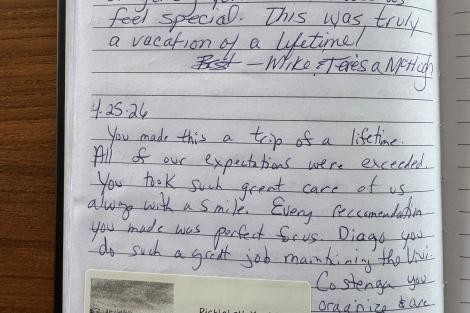 feel special. This was truly
a vacation of a lifetime!
— Mike & Teresa McHugh
4.25.26
You made this a trip of a lifetime.
All of our expectations were exceeded.
You took such great care of us
always with a smile. Every reccomendation
you made was perfect for us. Diago you
do such a great job maintining the Vivi.
Costenga you
organize & are